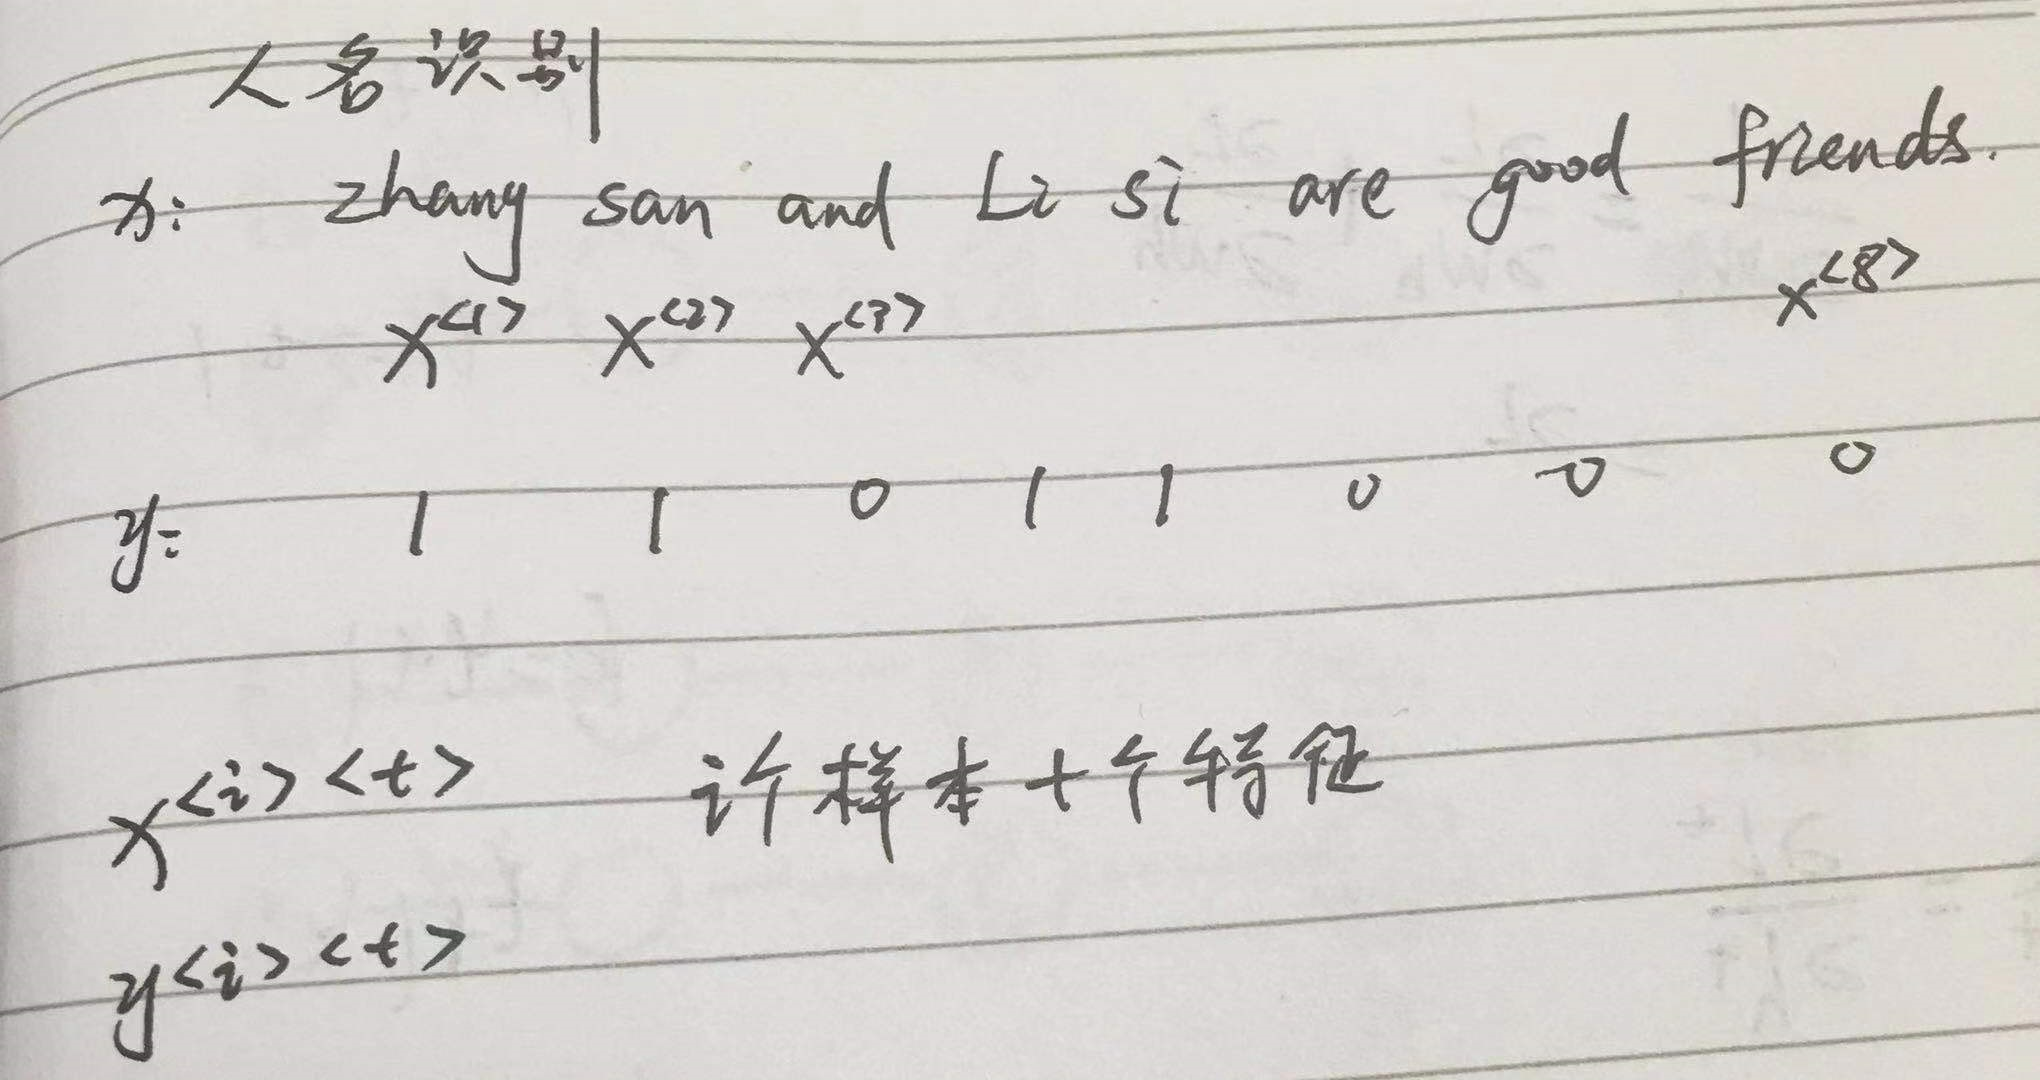 人名识别
x: zhang san and Li si are good friends.
x<1> x<2> x<3> x<8>
y: 1 1 0 1 1 0 0 0
x<i><t> i个样本 t个特征
y<i><t>